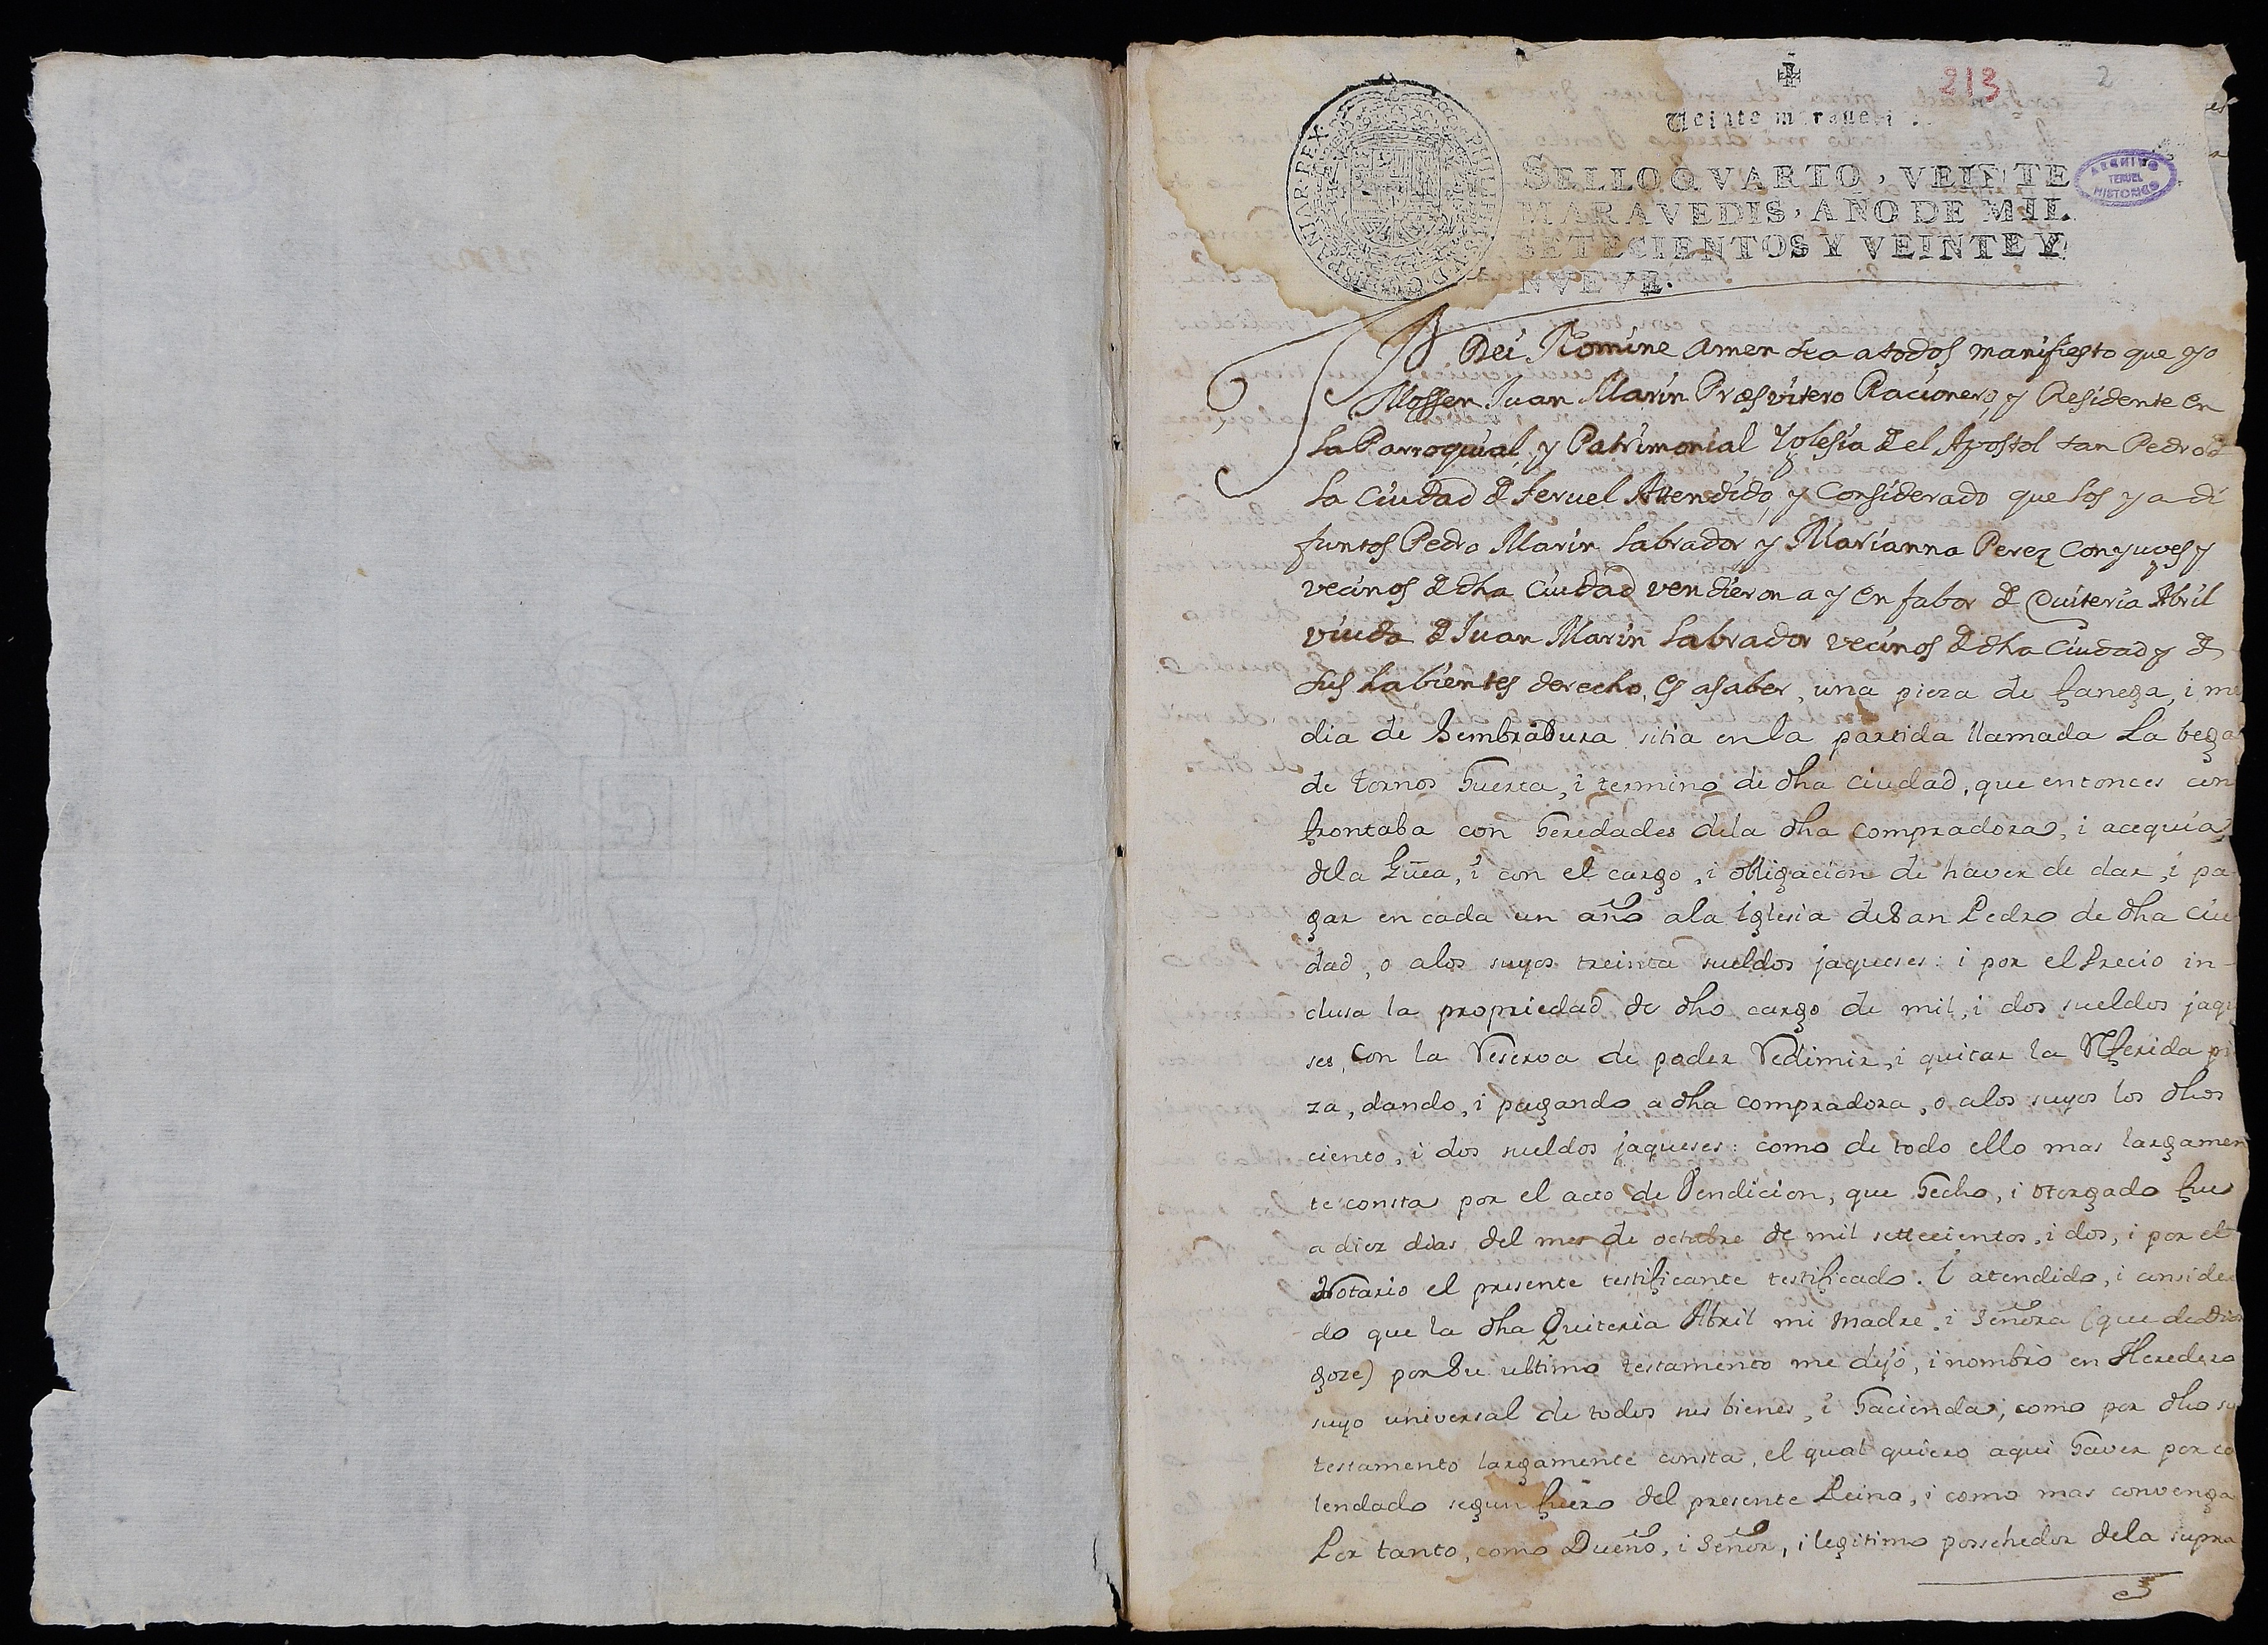 213
2
Veinte maravedis
SELLO QVARTO, VEINTE
MARAVEDIS, AÑO DE MIL
SETECIENTOS Y VEINTE Y
NVEVE.
ARCHIVO
TERUEL
HISTORICO
In Dei Nomine Amen sea a todos manifiesto que yo
Mossen Juan Marin Presvitero Racionero, y Residente en
la Parroquial, y Patrimonial Yglesia del Apostol san Pedro d
la Ciudad d Teruel Attendido, y Considerado que los ya di
funtos Pedro Marin Labrador, y Marianna Perez Conyuges y
vecinos d dha Ciudad vendieron a y en fabor d Quiteria Abril
viuda d Juan Marin Labrador vecinos d dha Ciudad y d
sus habientes derecho, es asaber, una pieza de fanega, i me
dia de Sembradura sitia en la partida llamada La bega
de tornos huerta, i termino de dha ciudad, que entonces con
frontaba con heredades dela dha compradora, i acequia
dela Guea, i con el cargo, i obligacion de haver de dar, i pa-
gar en cada un año ala Iglesia de San Pedro de dha Ciu
dad, o alos suyos treinta sueldos jaqueses: i por el Precio in-
clusa la propriedad de dho cargo de mil, i dos sueldos jaque
ses, Con la Reserva de poder Redimir, i quitar la Rferida pie
za, dando, i pagando a dha compradora, o alos suyos los dhos
ciento, i dos sueldos jaqueses: como de todo ello mas largamen
te consta por el acto de Vendicion, que hecho, i otorgado fue
a diez dias del mes de octubre de mil settecientos, i dos, i por el
Notario el presente testificante testificado. I atendido, i considera
do que la dha Quiteria Abril mi Madre, i Señora (que de Dios
goze) por Su ultimo testamento me dejò, i nombrò en Heredero
suyo universal de todos sus bienes, i hacienda, como por dho su
testamento largamente consta, el qual quiero aqui haver por ca
lendado segun fuero del presente Reino, i como mas convenga
Por tanto, como Dueño, i Señor, i legitimo possehedor dela supra